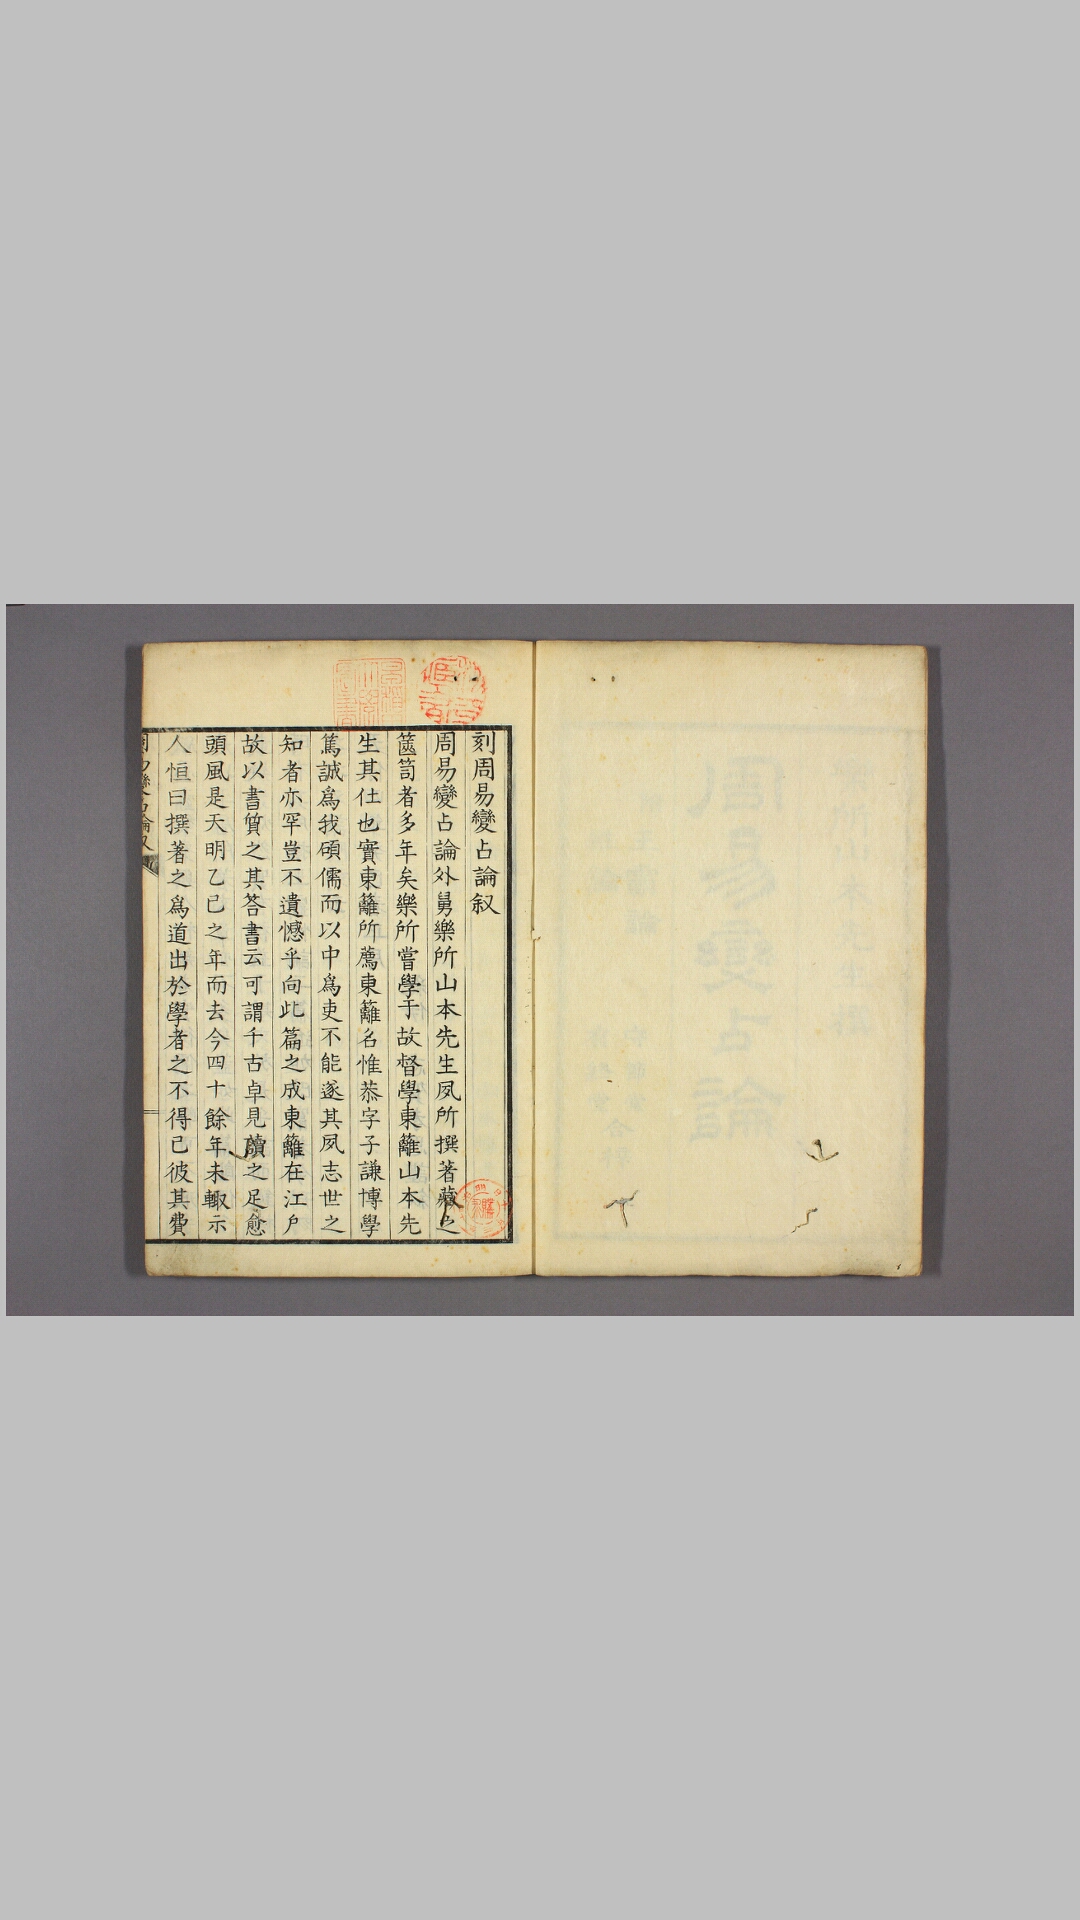 刻周易變占論叙
周易變占論外舅樂所山本先生夙所撰著藏之
篋笥者多年矣樂所嘗學于故督學東籬山本先
生其仕也實東籬所薦東籬名惟恭字子謙博學
篤誠爲我碩儒而以中爲吏不能遂其夙志世之
知者亦罕豈不遺憾乎向此篇之成東籬在江户
故以書質之其荅書云可謂千古卓見讀之足愈
頭風是天明乙巳之年而去今四十餘年未輙示
人恒曰撰著之爲道出於學者之不得已彼其費